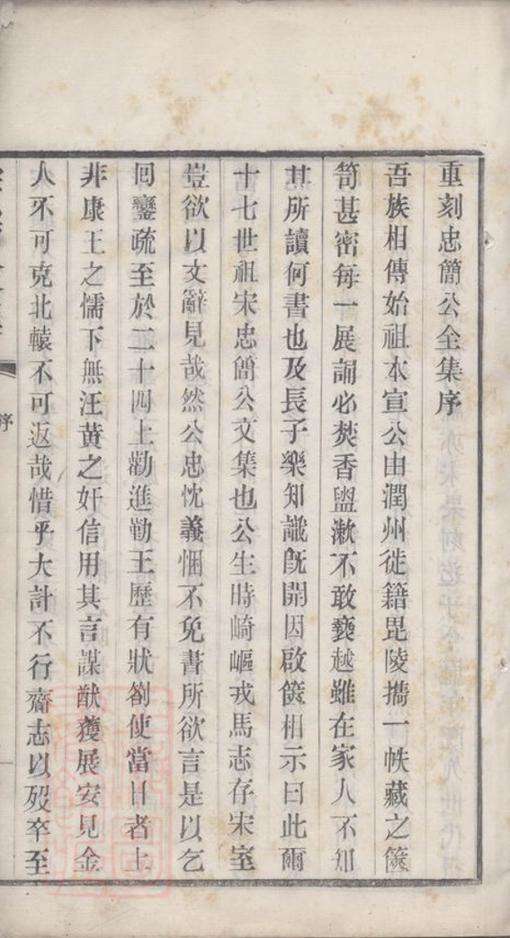 重刻忠簡公全集序
吾族相傳始祖本宣公由潤州徙籍毘陵攜一帙藏之篋
笥甚密每一展誦必焚香盥漱不敢褻越雖在家人不知
其所讀何書也及長子樂知識旣開因啟篋相示曰此爾
十七世祖宋忠簡公文集也公生時崎嶇戎馬志存宋室
豈欲以文辭見哉然公忠忱義悃不免書所欲言是以乞
回鑾疏至於二十四上勸進勤王歷有狀劄使當日者上
非康王之懦下無汪黃之奸信用其言謀猷獲展安見金
人不可克北轅不可返哉惜乎大計不行齎志以歿卒至
序